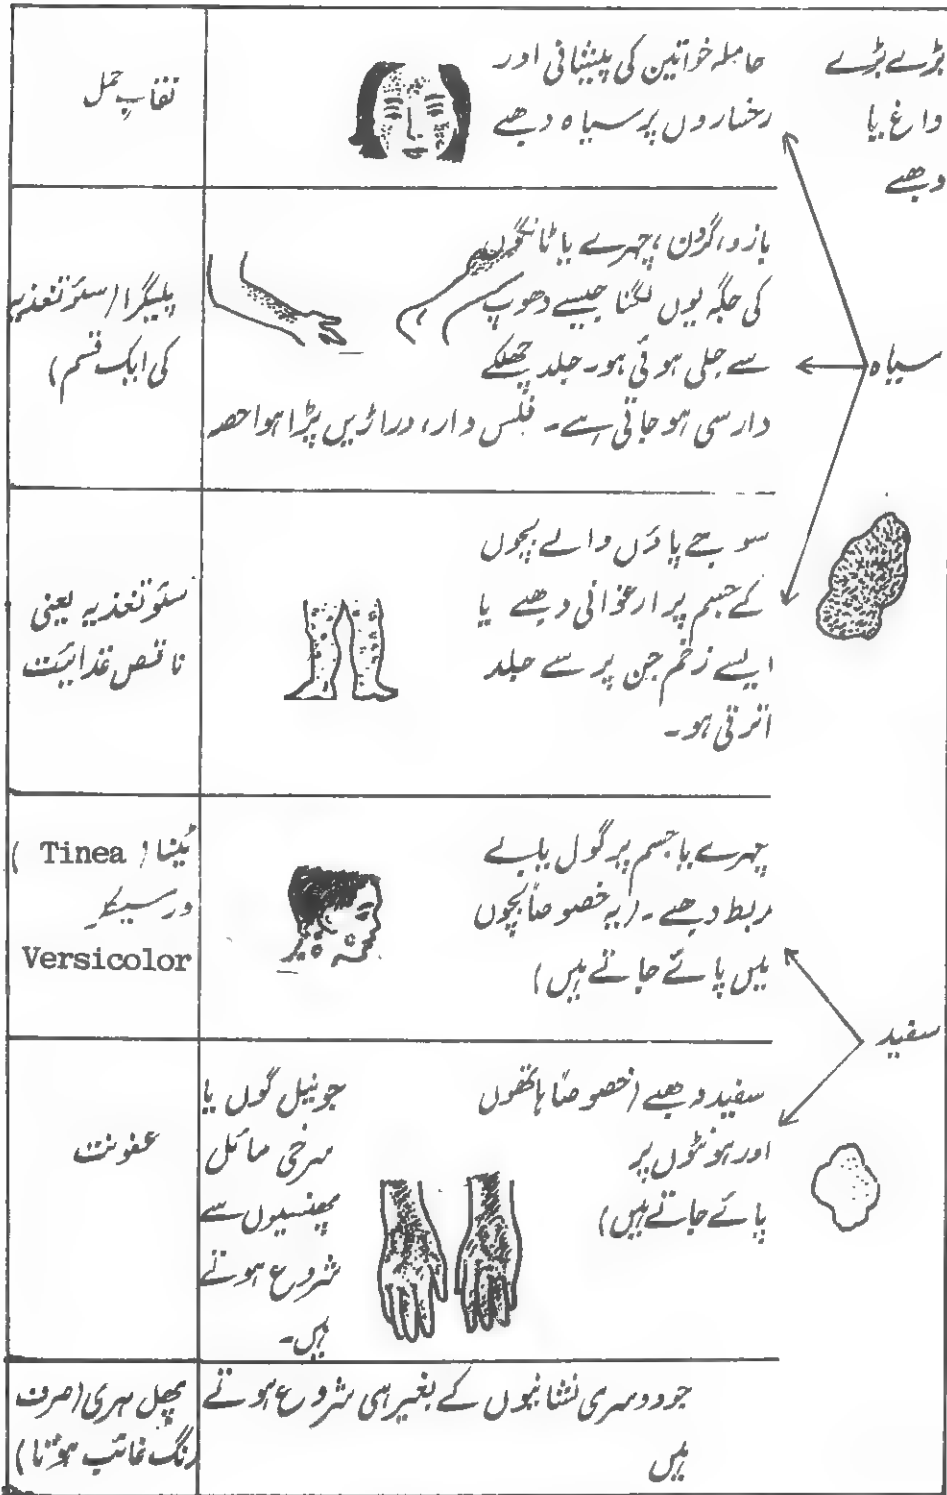 بڑے بڑے
داغ یا
دھبے
سیاہ
حاملہ خواتین کی پیشانی اور
رخساروں پر سیاہ دھبے
نقابِ حمل
بازو، گردن، چہرے یا ٹانگوں
کی جگہ یوں لگنا جیسے دھوپ
سے جلی ہوئی ہو۔ جلد چھلکے
دار سی ہو جاتی ہے۔ فلس دار، دراڑیں پڑا ہوا حصہ
پلیگرا (سوء تغذیہ
کی ایک قسم)
سوجے پاؤں والے بچوں
کے جسم پر ارغوانی دھبے یا
ایسے زخم جن پر سے جلد
اترتی ہو۔
سوء تغذیہ یعنی
ناقص غذائیت
سفید
چہرے یا جسم پر گول یا بے
ربط دھبے۔ (یہ خصوصاً بچوں
میں پائے جاتے ہیں)
ٹینیا ( Tinea )
ورسیکلر
Versicolor
سفید دھبے (خصوصاً ہاتھوں
اور ہونٹوں پر
پائے جاتے ہیں)
جو نیل گوں یا
سرخی مائل
پھنسیوں سے
شروع ہوتے
ہیں۔
عفونت
جو دوسری نشانیوں کے بغیر ہی شروع ہوتے
ہیں
پھل بہری (صرف
رنگ غائب ہونا)